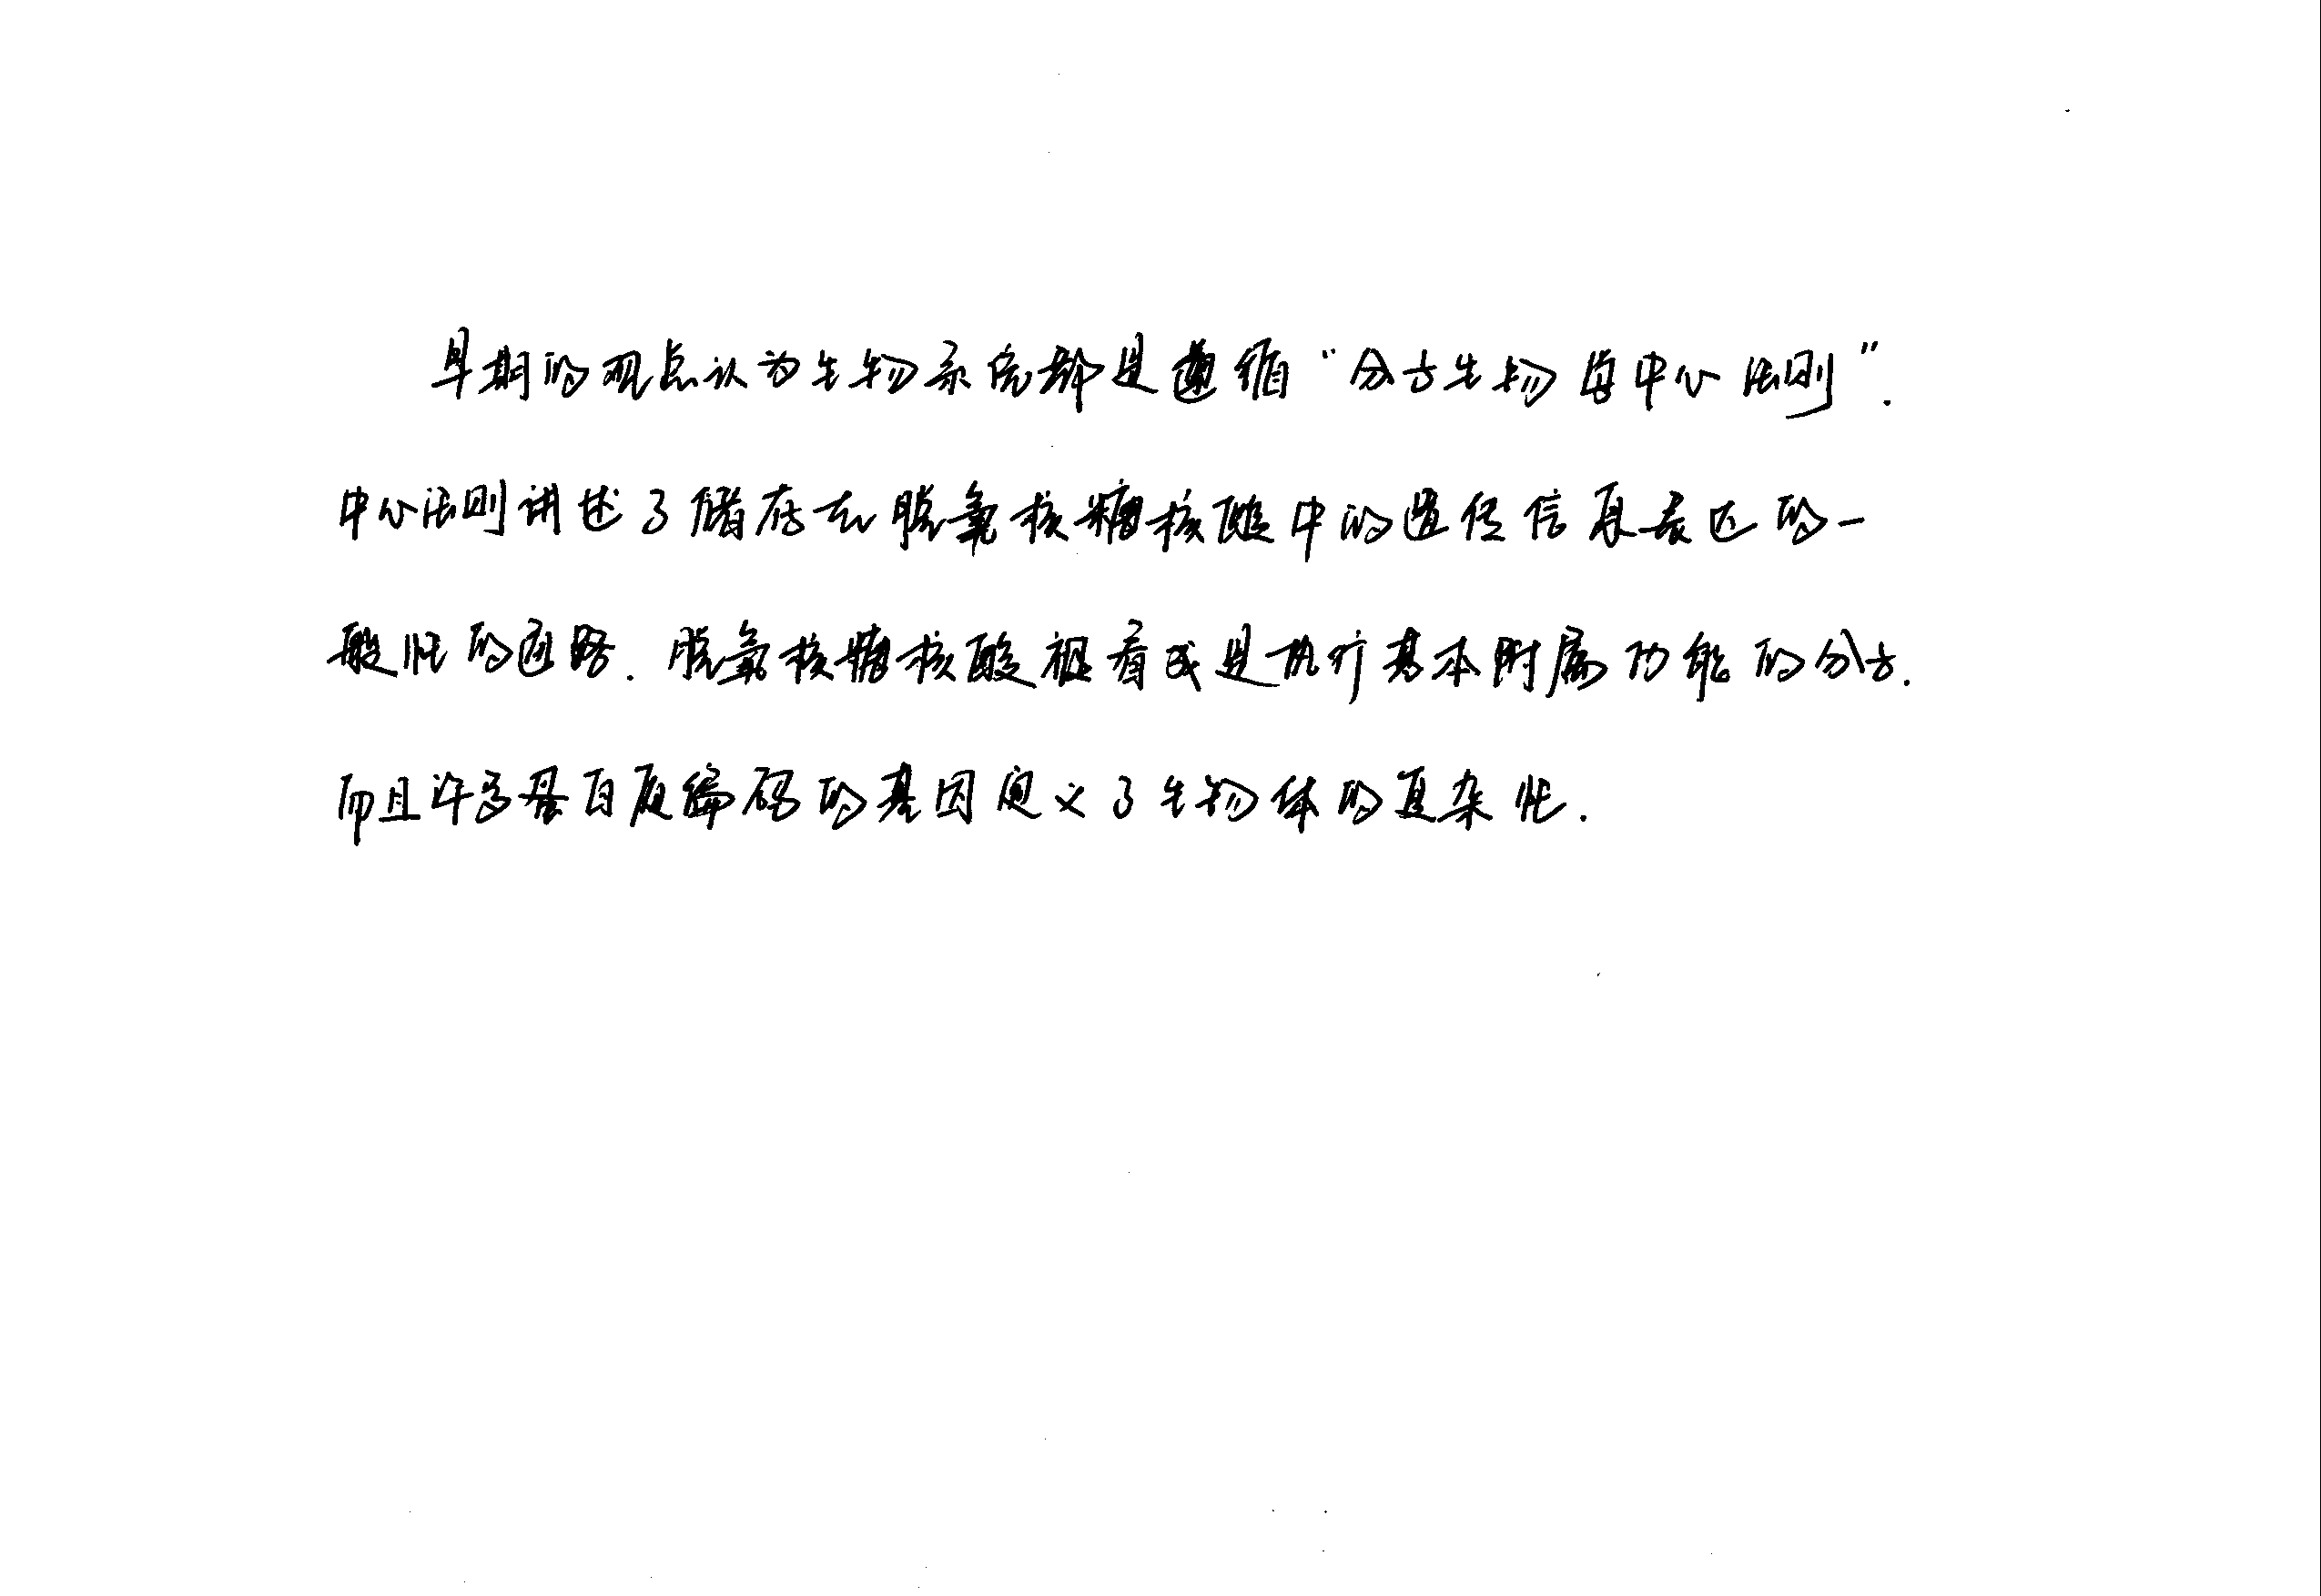 早期的观点认为生物系统都是遵循“分子生物学中心法则”.
中心法则讲述了储存在脱氧核糖核酸中的遗传信息表达的一
般性的通路.脱氧核糖核酸被看成是执行基本附属功能的分子.
而且许多蛋白质编码的基因定义了生物体的复杂性.